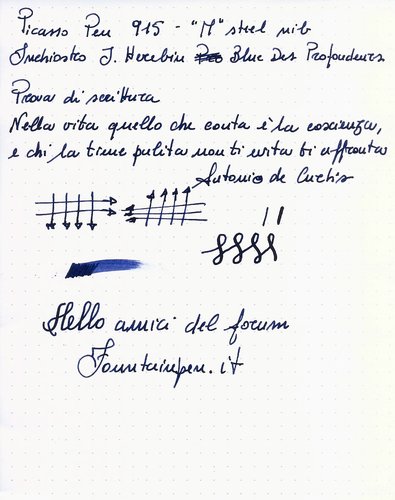 Picasso Pen 915 - "M" steel nib
Inchiostro J. Herebin Bleu Des Profondeurs
Prova di scrittura
Nella vita quello che conta è la coscienza,
e chi la tiene pulita non ti evita ti affronta
Antonio de Curtis
Hello amici del forum
Fountainpen.it